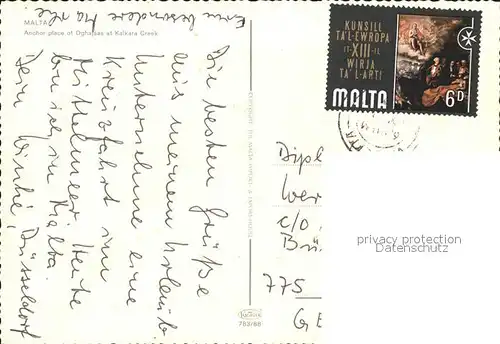 MALTA
Anchor place of Dghajsas at Kalkara Creek
Eine besondere Marke
Die besten Grüße
aus meinem Urlaub.
Unternehme eine
Kreuzfahrt im
Mittelmeer. Heute
bin ich in Malta.
Dein Düsseldorf
KUNSILL
TA'L-EWROPA
IT-XIII-IL
WIRJA
TA' L-ARTI
MALTA 6D
Dipl
Wer
c/o
Brü
775
GE
privacy protection
Datenschutz